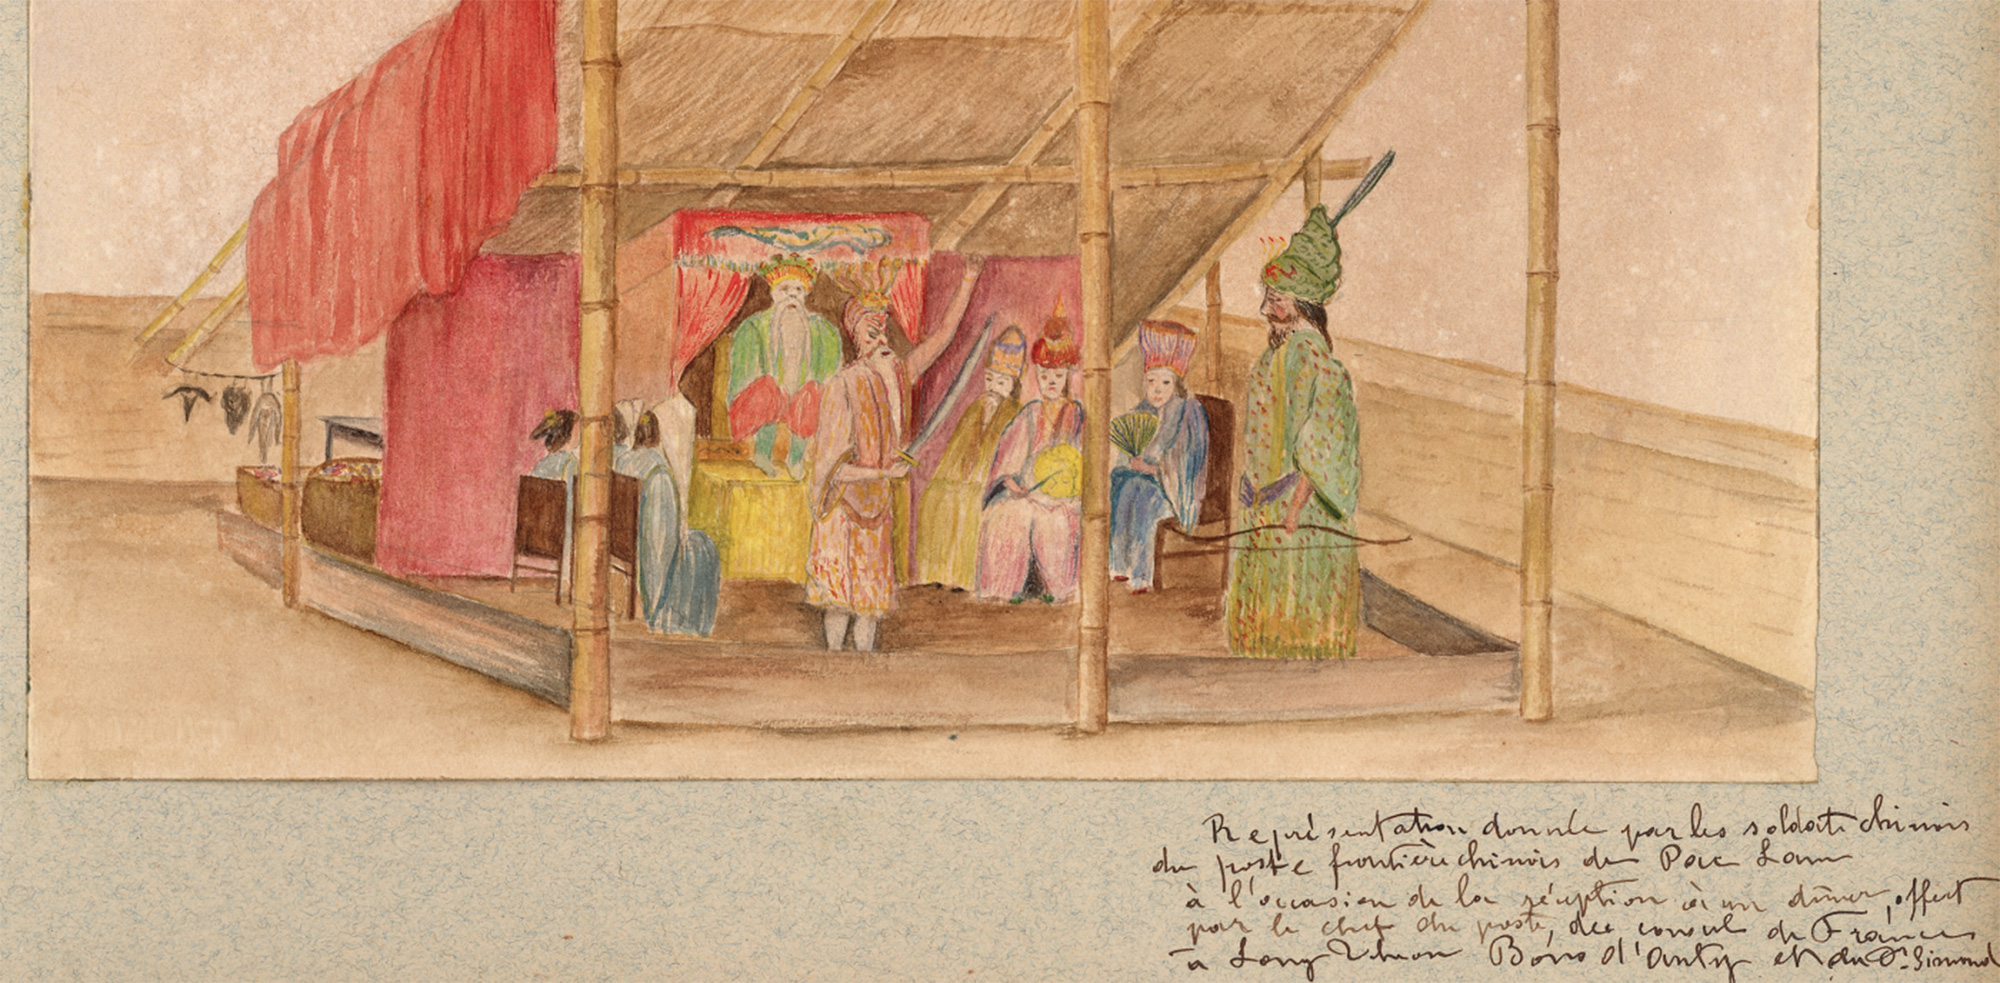 Représentation donnée par les soldats chinois
du poste frontière chinois de Pac Lam
à l'occasion de la réception à un dîner, offert
par le chef du poste, du consul de France
à Long Tcheou Bons d'Anty et du Dr. Simond